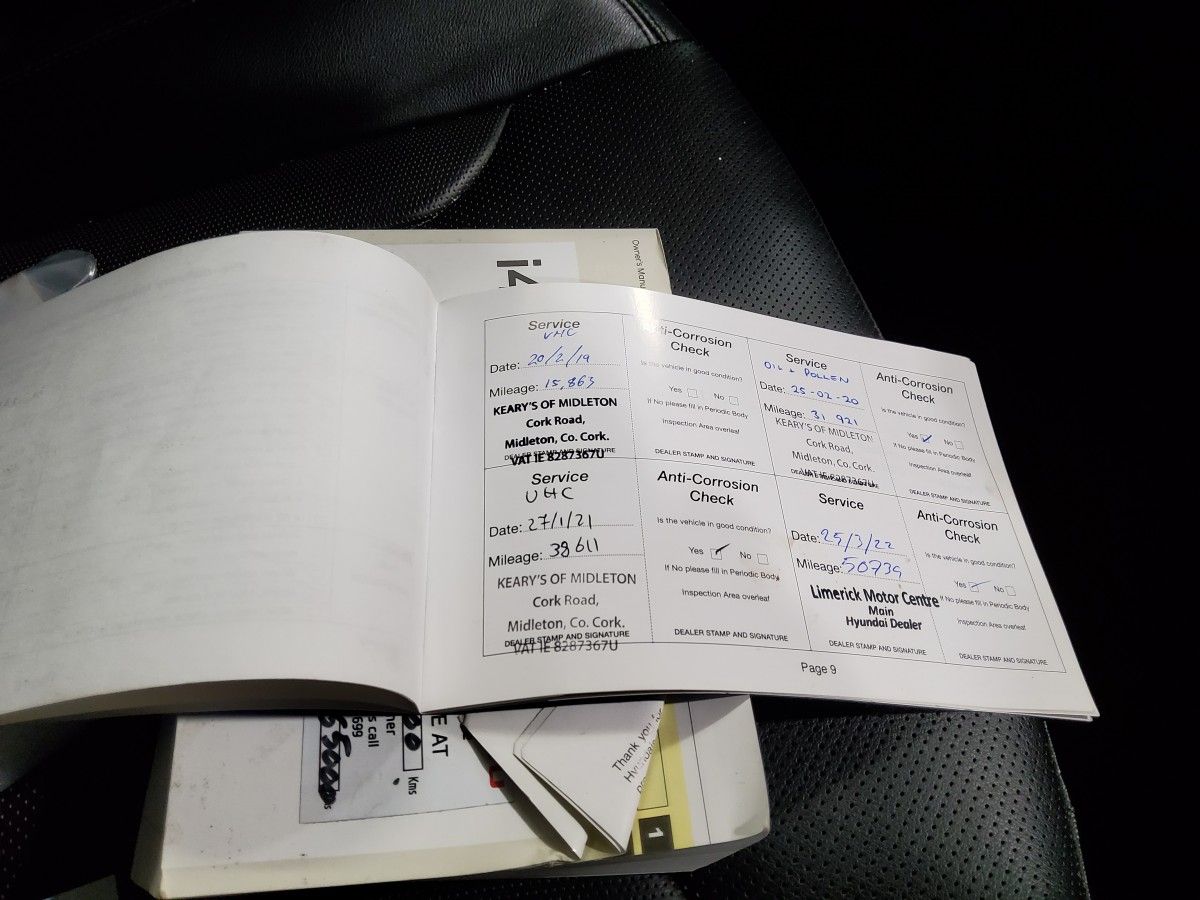 Owner's Man
Service
VHC
Date: 20/2/19
Mileage: 15,863
KEARY'S OF MIDLETON
Cork Road,
Midleton, Co. Cork.
DEALER STAMP AND SIGNATURE
VAT IE 8287367U
Anti-Corrosion
Check
Is the vehicle in good condition?
Yes No
If No please fill in Periodic Body
Inspection Area overleaf
DEALER STAMP AND SIGNATURE
Service
OIL + POLLEN
Date: 25-02-20
Mileage: 31 921
KEARY'S OF MIDLETON
Cork Road,
Midleton, Co. Cork.
VAT IE 8287367U
Anti-Corrosion
Check
Is the vehicle in good condition?
Yes No
If No please fill in Periodic Body
Inspection Area overleaf
DEALER STAMP AND SIGNATURE
Service
VHC
Date: 27/1/21
Mileage: 38611
KEARY'S OF MIDLETON
Cork Road,
Midleton, Co. Cork.
DEALER STAMP AND SIGNATURE
VAT IE 8287367U
Anti-Corrosion
Check
Is the vehicle in good condition?
Yes No
If No please fill in Periodic Body
Inspection Area overleaf
DEALER STAMP AND SIGNATURE
Service
Date: 25/3/22
Mileage: 50739
Limerick Motor Centre
Main
Hyundai Dealer
DEALER STAMP AND SIGNATURE
Anti-Corrosion
Check
Is the vehicle in good condition?
Yes No
If No please fill in Periodic Body
Inspection Area overleaf
DEALER STAMP AND SIGNATURE
Page 9
E AT
Kms
s call
699
Thank you for
1